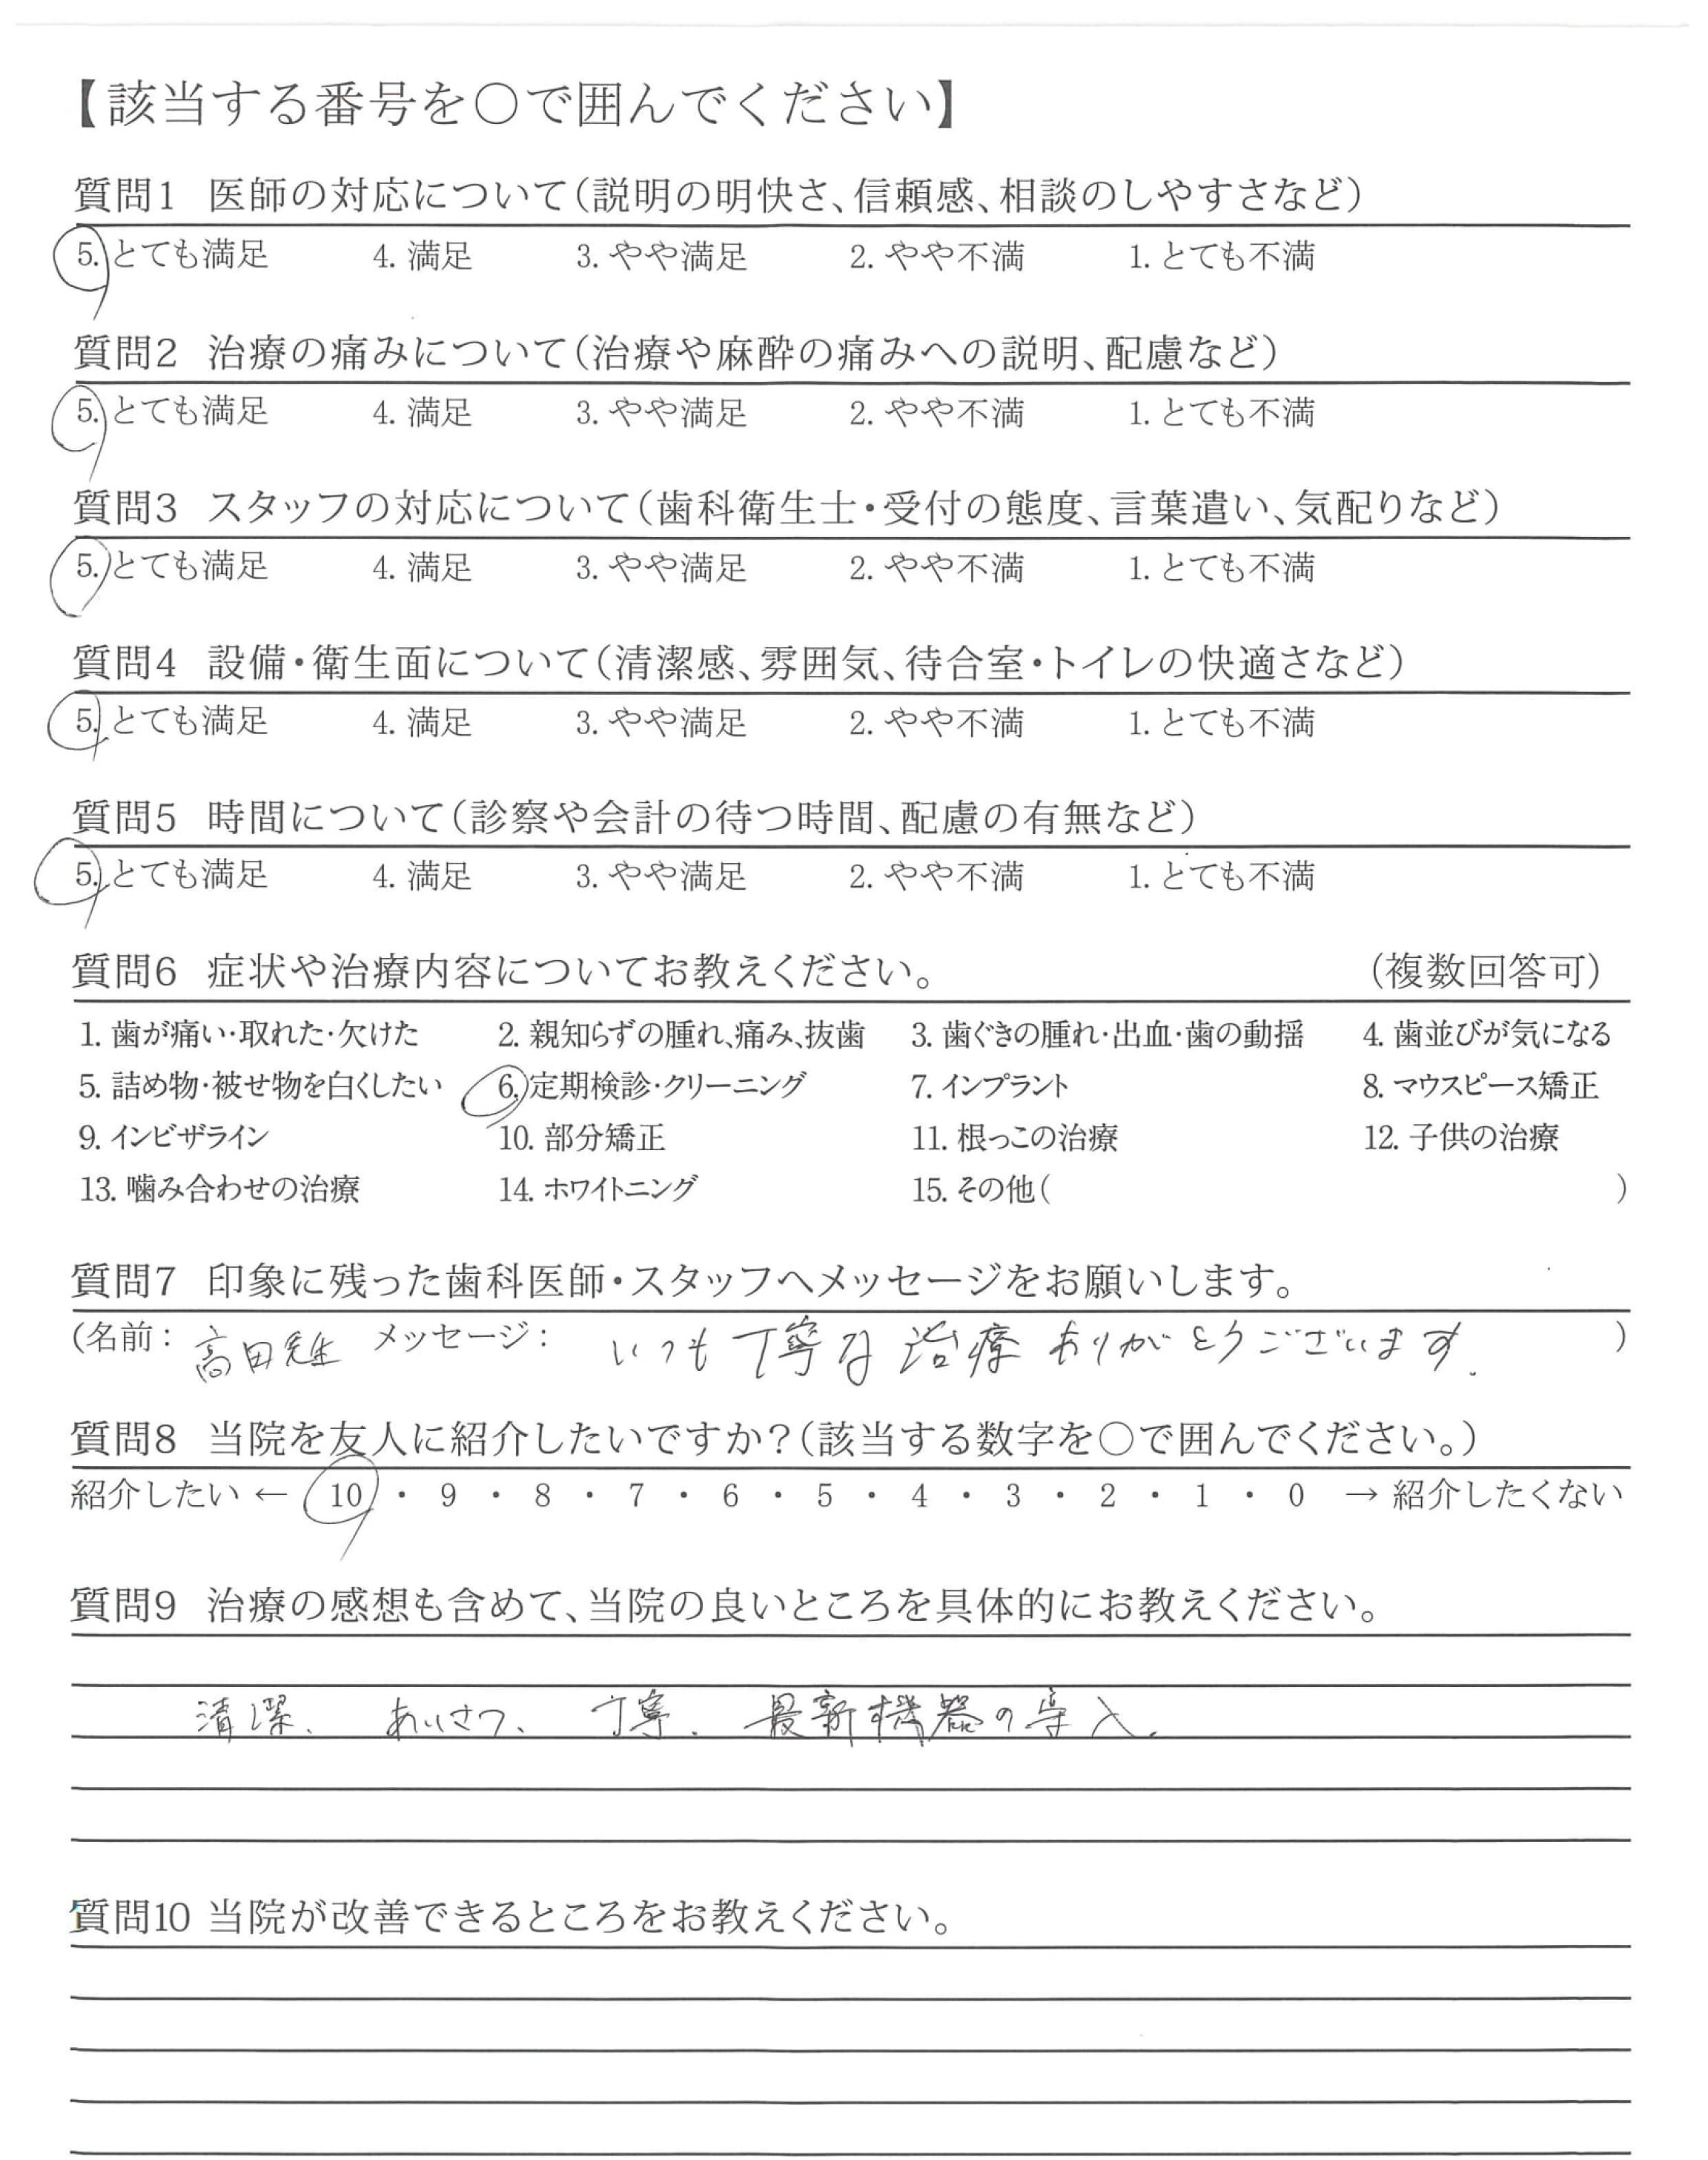 【該当する番号を〇で囲んでください】
質問1 医師の対応について（説明の明快さ、信頼感、相談のしやすさなど）
5. とても満足 4. 満足 3. やや満足 2. やや不満 1. とても不満
質問2 治療の痛みについて（治療や麻酔の痛みへの説明、配慮など）
5. とても満足 4. 満足 3. やや満足 2. やや不満 1. とても不満
質問3 スタッフの対応について（歯科衛生士・受付の態度、言葉遣い、気配りなど）
5. とても満足 4. 満足 3. やや満足 2. やや不満 1. とても不満
質問4 設備・衛生面について（清潔感、雰囲気、待合室・トイレの快適さなど）
5. とても満足 4. 満足 3. やや満足 2. やや不満 1. とても不満
質問5 時間について（診察や会計の待つ時間、配慮の有無など）
5. とても満足 4. 満足 3. やや満足 2. やや不満 1. とても不満
質問6 症状や治療内容についてお教えください。 （複数回答可）
1. 歯が痛い・取れた・欠けた 2. 親知らずの腫れ、痛み、抜歯 3. 歯ぐきの腫れ・出血・歯の動揺 4. 歯並びが気になる
5. 詰め物・被せ物を白くしたい 6. 定期検診・クリーニング 7. インプラント 8. マウスピース矯正
9. インビザライン 10. 部分矯正 11. 根っこの治療 12. 子供の治療
13. 噛み合わせの治療 14. ホワイトニング 15. その他（ ）
質問7 印象に残った歯科医師・スタッフへメッセージをお願いします。
（名前： 高田先生 メッセージ： いつも丁寧な治療ありがとうございます. ）
質問8 当院を友人に紹介したいですか？（該当する数字を〇で囲んでください。）
紹介したい ← 10 ・ 9 ・ 8 ・ 7 ・ 6 ・ 5 ・ 4 ・ 3 ・ 2 ・ 1 ・ 0 → 紹介したくない
質問9 治療の感想も含めて、当院の良いところを具体的にお教えください。
清潔、 あいさつ、 丁寧、 最新機器の導入.
質問10 当院が改善できるところをお教えください。